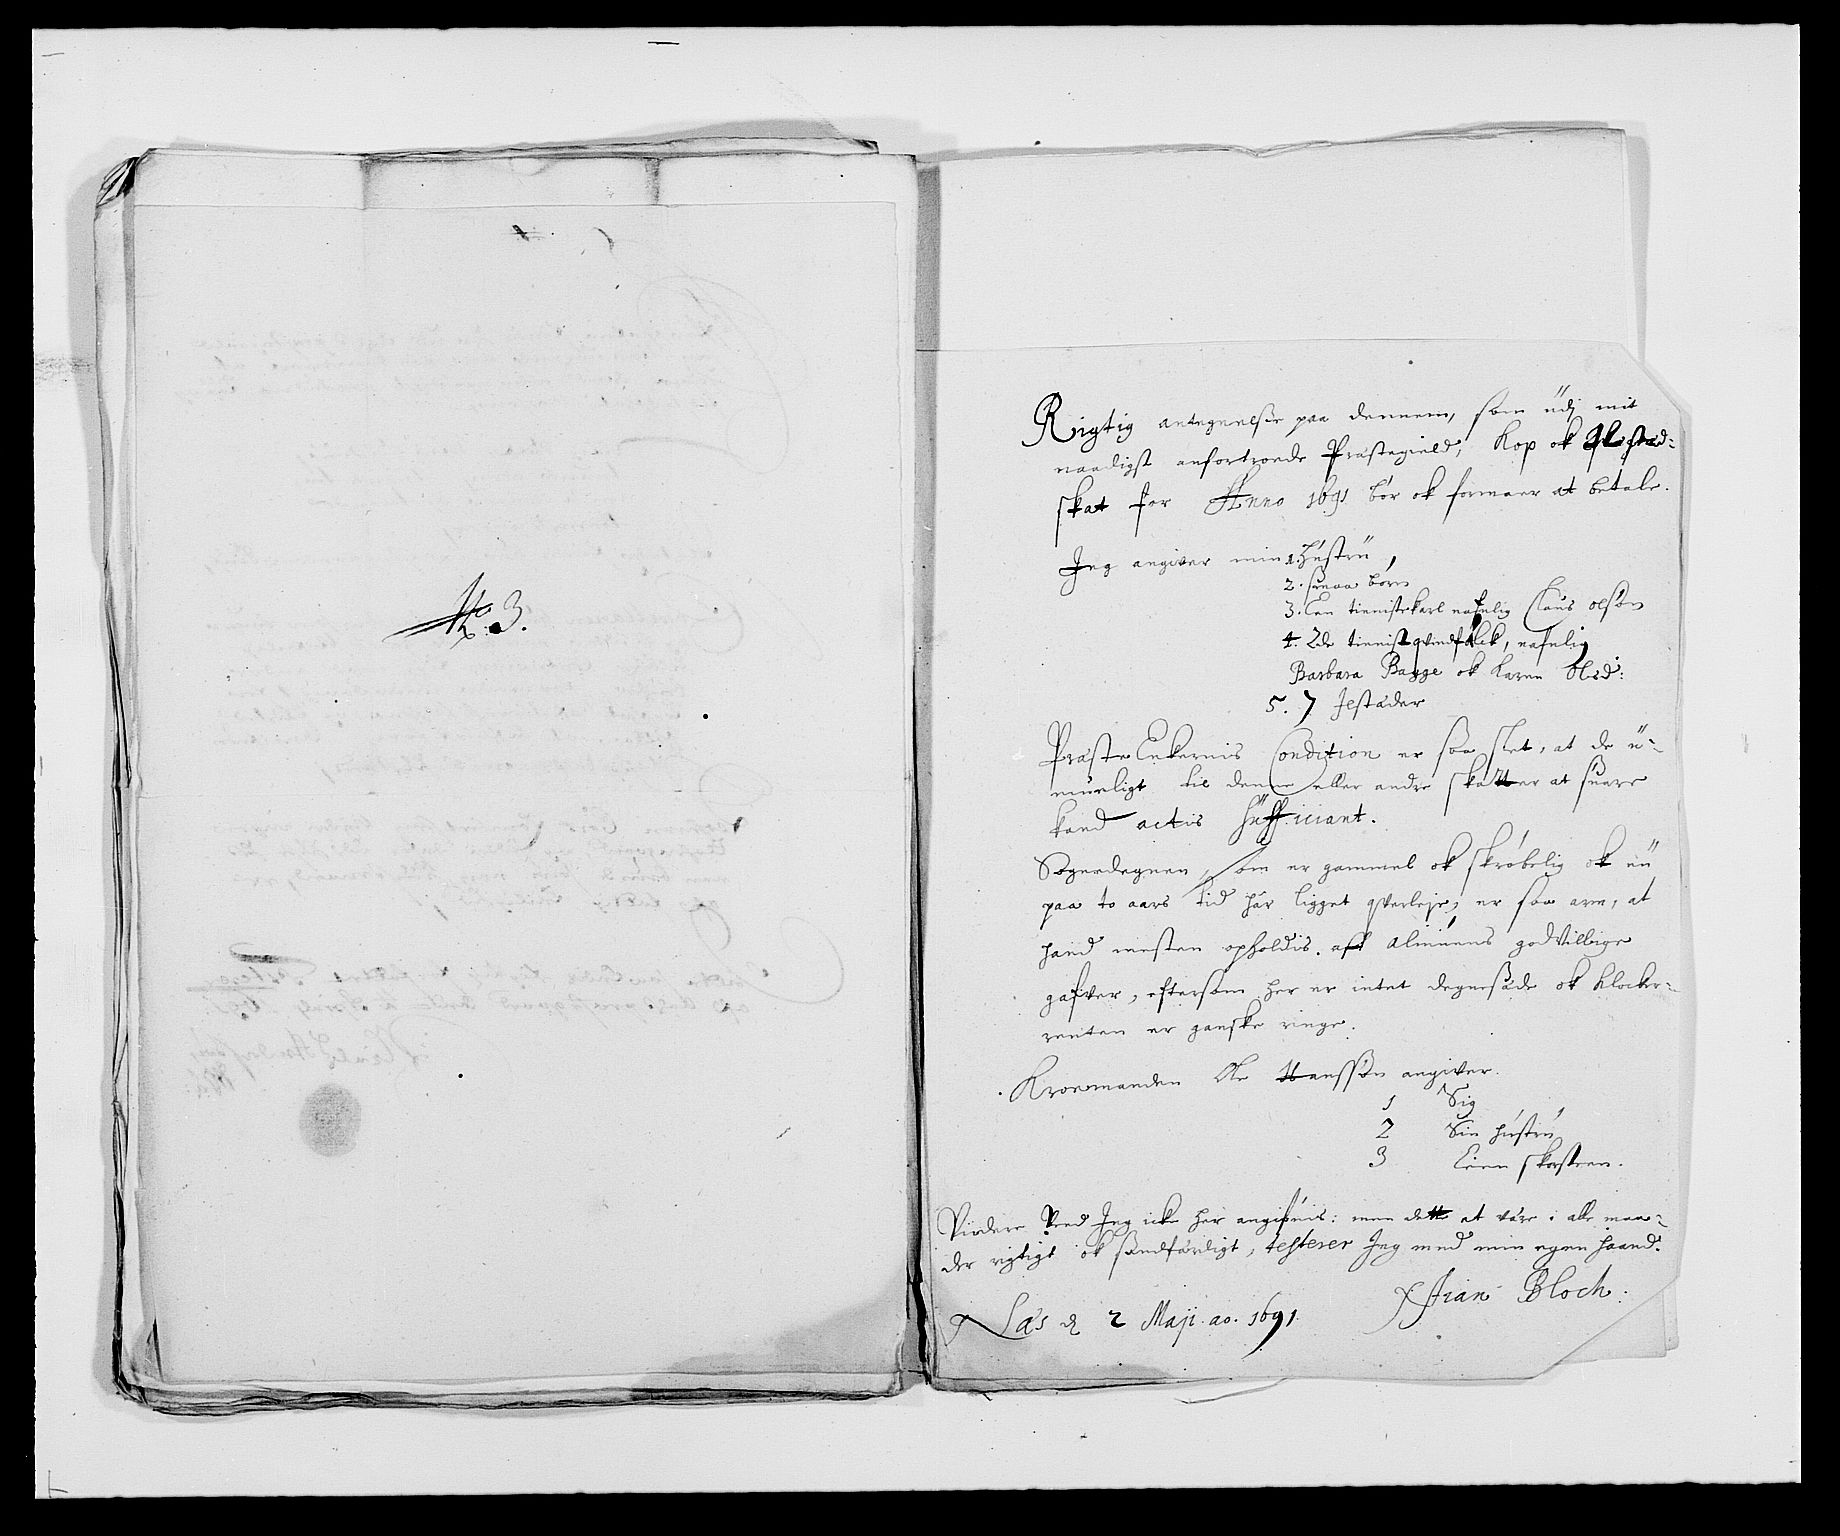 No 3.
Rigtig antegnelse paa dennem, som udj mit
naadigst anfortroede Præstegield, Kop ok Ildsted-
skat for Anno 1691 bør ok formaer at betale.
Jeg angiver min 1. hustrü,
2. smaa børn
3. Een tienistekarl nafnlig Claus olsøn
4. 2de tienistqvindfolck, nafnlig
Barbara Bagge ok Karen Olsd:
5. 7 Ilstæder
Præste Enkernis Condition er saa slet, at de ü-
mueligt til denne eller andre skatter at suare
kand actis Sufficiant.
Sognedegnen, som er gammel ok skrøbelig ok nü
paa to aars tid har ligget qverleje, er saa arm, at
hand mesten opholdis aff Almüens godvillige
gafver, eftersom her er intet degnesæde ok Klocker-
renten er ganske ringe.
Kroemanden Ole Hanssøn angiver.
1 Sig
2 Sin hüstrü
3 Eien skorsteen.
Viidere veed Jeg icke her angifvis: men dette at være i alle maa-
der rigtigt ok sandfærdigt, testerer Jeg med min egen haand.
Næs d 2 Maji ao. 1691.
Jran Bloch.